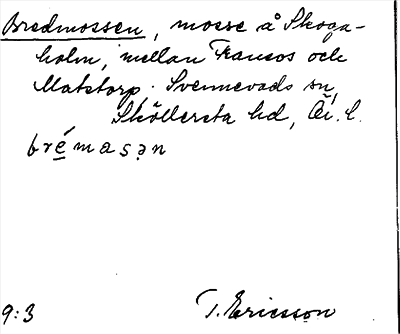 Bredmossen, mosse å Skoga-
holm, mellan Fransos och
Matstorp. Svennevads sn,
Sköllersta hd, Ör. l.
brémasən
9:3 T. Ericsson